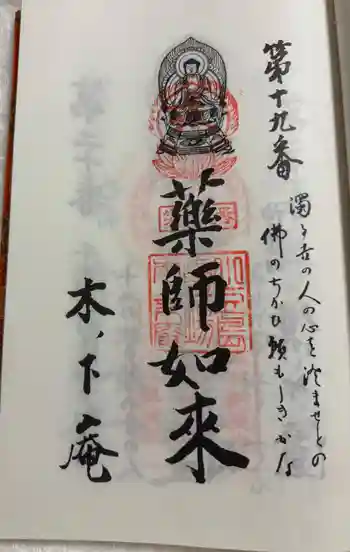 第十九番
濁る世の人の心を澄ませとの
佛のちかひ頼もしきかな
薬師如来
木ノ下庵